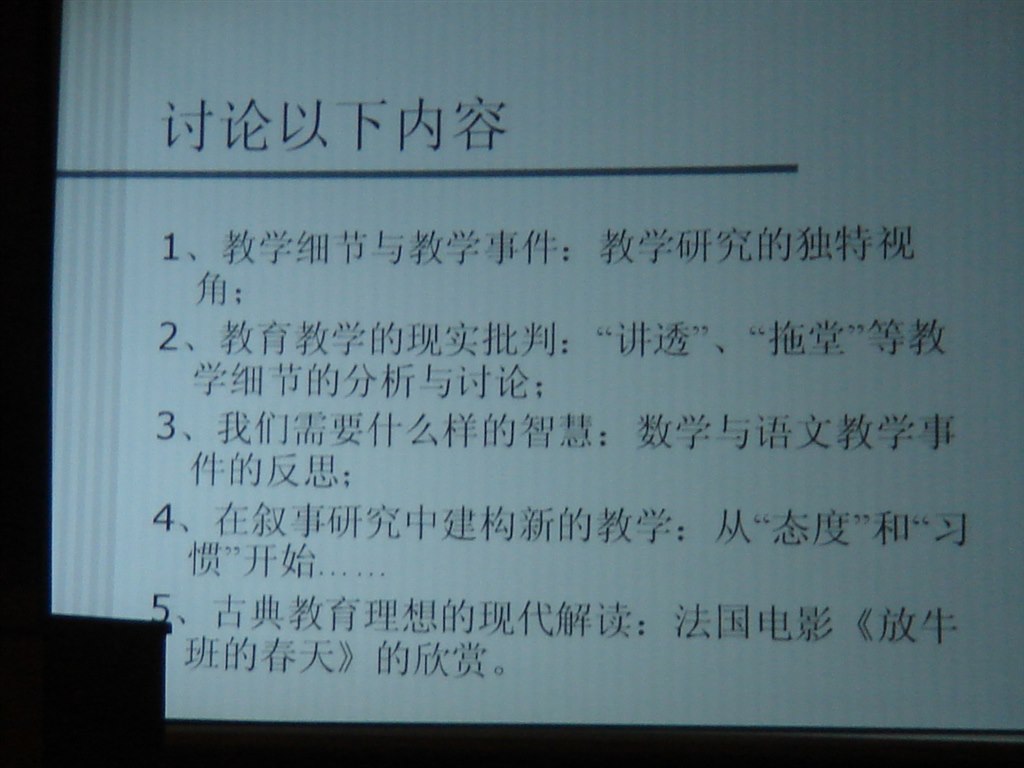 讨论以下内容
1、教学细节与教学事件：教学研究的独特视
角；
2、教育教学的现实批判：“讲透”、“拖堂”等教
学细节的分析与讨论；
3、我们需要什么样的智慧：数学与语文教学事
件的反思；
4、在叙事研究中建构新的教学：从“态度”和“习
惯”开始……
5、古典教育理想的现代解读：法国电影《放牛
班的春天》的欣赏。